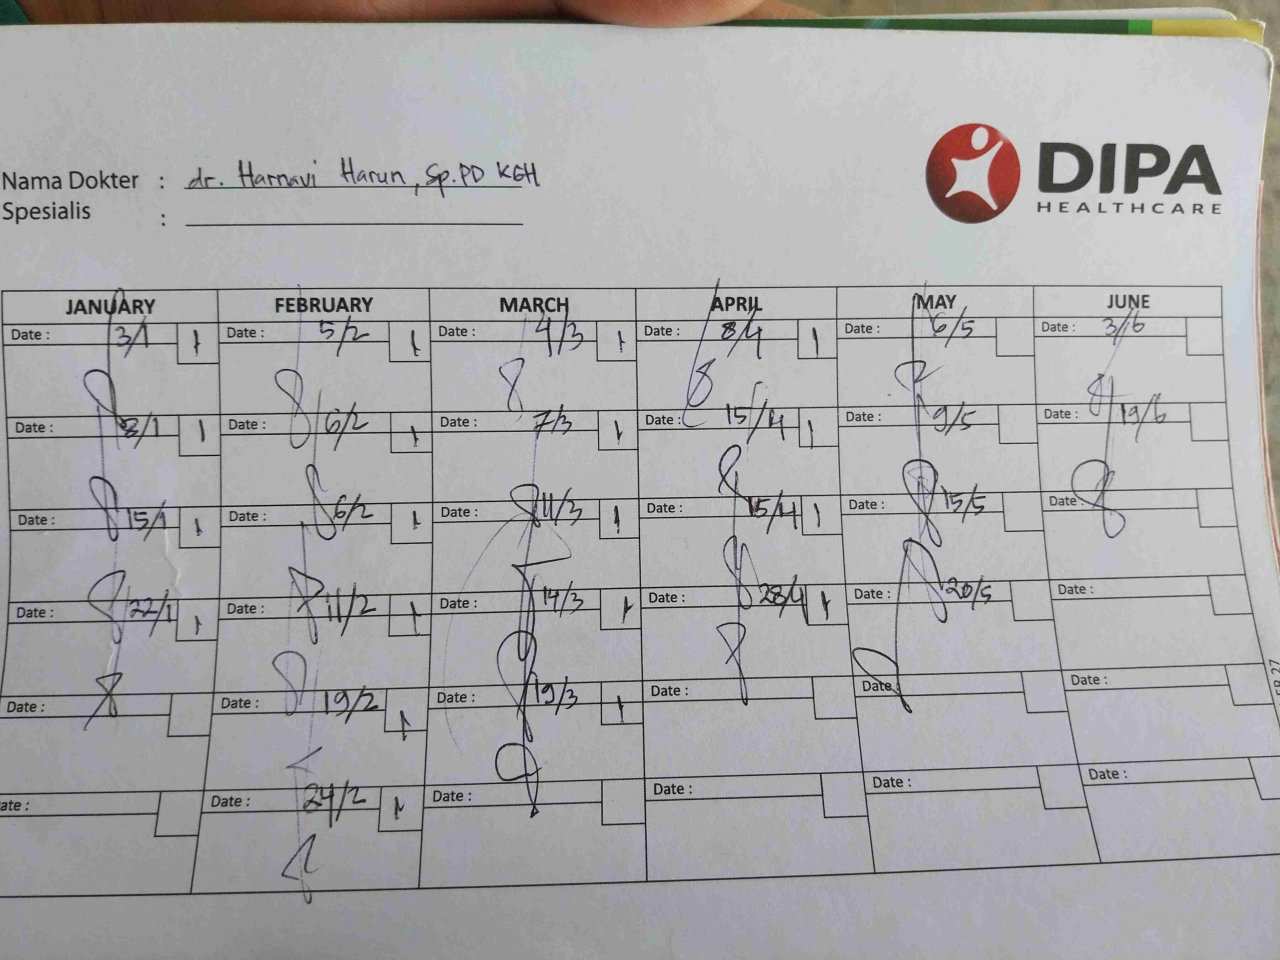 DIPA
HEALTHCARE
Nama Dokter : dr. Harnavi Harun, Sp.PD KGH
Spesialis :
JANUARY FEBRUARY MARCH APRIL MAY JUNE
Date : 3/1 1 Date : 5/2 1 Date : 4/3 1 Date : 8/4 1 Date : 6/5 Date : 3/6
Date : 8/1 1 Date : 6/2 1 Date : 7/3 1 Date : 15/4 1 Date : 9/5 Date : 19/6
Date : 15/1 1 Date : 6/2 1 Date : 11/3 1 Date : 15/4 1 Date : 15/5 Date :
Date : 22/1 1 Date : 11/2 1 Date : 14/3 1 Date : 28/4 1 Date : 20/5 Date :
Date : Date : 19/2 1 Date : 19/3 1 Date : Date : Date :
ate : Date : 24/2 1 Date : Date : Date : Date :